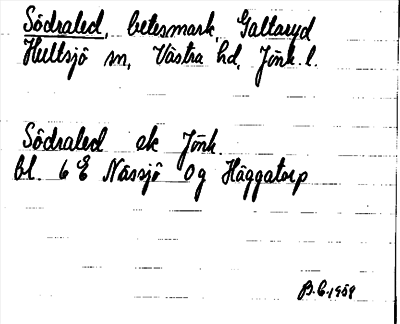 Södraled, betesmark, Galtaryd
Hultsjö sn, Västra hd, Jönk. l.
Södraled ek Jönk.
bl. 6 E Nässjö 0g Häggatorp
B.E. 1958